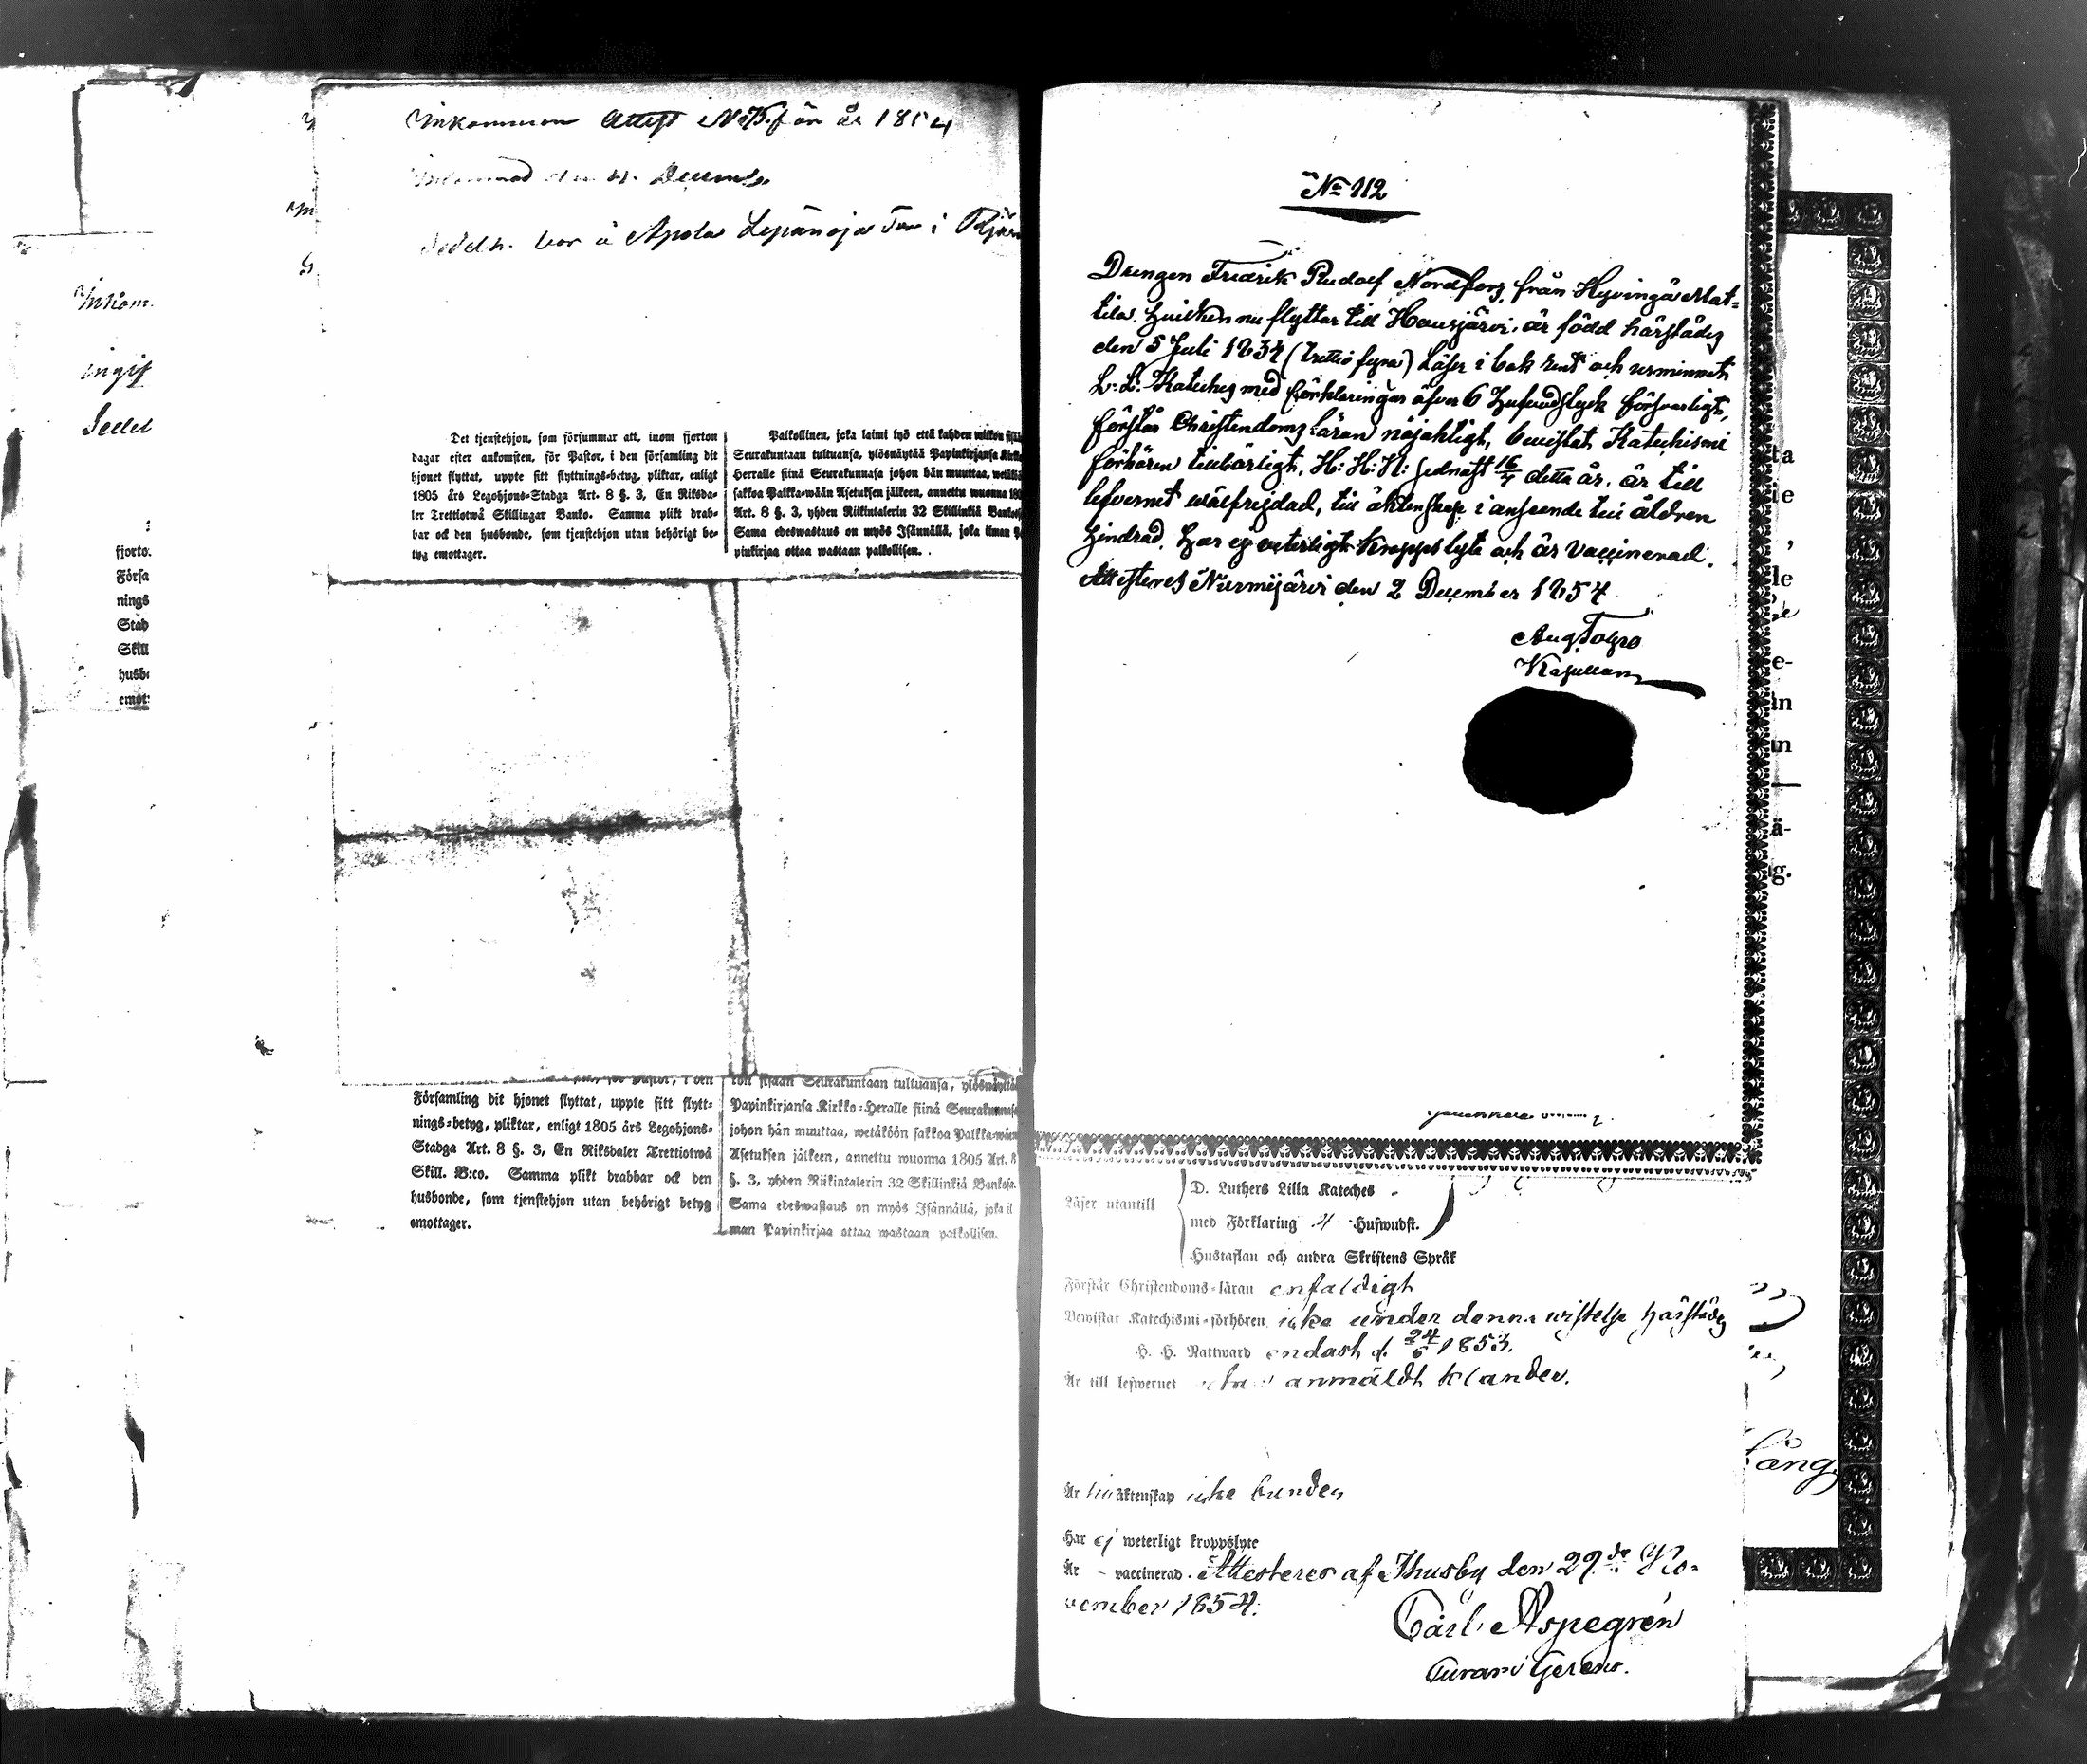 Inkommen Attest No 73 för år 1854
den 4. Decemb.
bor å Apola Lepänoja Torp i
Inkom
ingif
Sedel
Det tjenstehjon, som försummar att, inom fjorton
dagar efter ankomsten, för Pastor, i den församling dit
hjonet flyttat, uppte sitt flyttnings-betyg, pliktar, enligt
1805 års Legohjons-Stadga Art. 8 §. 3, En Riksda-
ler Trettiotwå Skillingar Banko. Samma plikt drab-
bar ock den husbonde, som tjenstehjon utan behörigt be-
tyg emottager.
Palkollinen, joka laimi lyö että kahden wiikon
Seurakuntaan tultuansa, ylösnäytää Papinkirjansa
Herralle siinä Seurakunnasa johon hän muuttaa,
sakkoa Palkka-wään Asetuksen jälkeen, annettu wuonna
Art. 8 §. 3, yhden Riikintalerin 32 Skillinkiä
Sama edeswastaus on myös Isännällä, joka ilman
pinkirjaa ottaa wastaan palkollisen.
fjorto
Förfa
nings
Stad
Skill
husb
emot
Församling dit hjonet flyttat, uppte sitt flytt-
nings-betyg, pliktar, enligt 1805 års Legohjons-
Stadga Art. 8 §. 3, En Riksdaler Trettiotwå
Skill. B:co. Samma plikt drabbar ock den
husbonde, som tjenstehjon utan behörigt betyg
emottager.
ton sisään Seurakuntaan tultuansa,
Papinkirjansa Kirkko-Heralle siinä
johon hän muuttaa, wetäköön sakkoa
Asetuksen jälkeen, annettu wuonna 1805 Art. 8
§. 3, yhden Riikintalerin 32 Skillinkiä
Sama edeswastaus on myös Isännällä, joka il
man Papinkirjaa ottaa wastaan palkollisen.
No 112
Drengen Fredrik Rudolf Nordfors från Hyvingä Mat-
tila, hvilken nu flyttar till Hausjärvi, är född härstädes
den 5 Juli 1834 (trettio fyra) Läser i bok rent och urminnet
L: L: Kateches med förklaringar öfver 6 Hufvudstyck försvarligt,
förstår Christendoms läran nöjaktigt, bevistat Katechismi
förhören tillbörligt, H: H: N: sednast 16/4 detta år, är till
lefvernet wälfrejdad, till äktenskap i anseende till åldren
hindrad, har ej veterligt kroppslyte och är Vaccinerad.
Attesteres Nurmijärvi den 2 December 1854
Kapellan
Läser utantill
D. Luthers Lilla Kateches
med Förklaring 4 Hufwudst.
Hustaflan och andra Skriftens Språk
Förstår Christendoms-läran enfaldigt
Bewistat Katechismi-förhören icke under denna wistelse härstädes
H. H. Nattward endast d. 24/6 1853.
Är till lefwernet utan anmäldt klander.
Är till äktenskap icke bunden
Har ej weterligt kroppslyte
Är vaccinerad. Attesteres af Thusby den 29de No-
vember 1854.
Carl Aspegrén
Curam Gerens.
ta
ie
,
de
e-
än
in
ä-
ig.
Lång